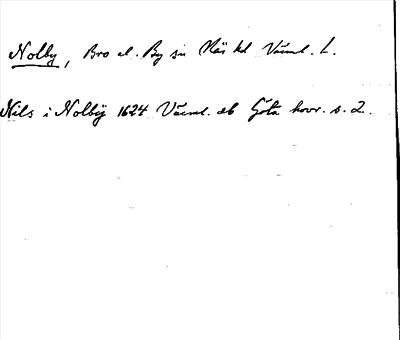 Nolby, Bro el. By sn Näs hd Värml. L.
Nils i Nolbÿ 1624 Värml. ab Göta hovr. s. 2.